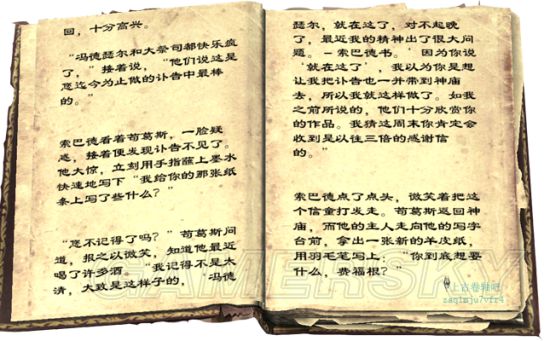 回，十分高兴。
“冯德瑟尔和大祭司都快乐疯
了，”接着说，“他们说这是
您迄今为止做的讣告中最棒
的。”
索巴德看着苟葛斯，一脸疑
惑，接着便发现讣告不见了。
他大惊，立刻用手指蘸上墨水
快速地写下“我给你的那张纸
条上写了些什么？”
“您不记得了吗？”苟葛斯问
道，报之以微笑，知道他最近
喝了许多酒。“我记得不是太
清，大致是这样子的，‘冯德
瑟尔，就在这了，对不起晚
了，最近我的精神出了很大问
题。－索巴德书。’因为你说
‘就在这了’，我以为你是想
让我把讣告也一并带到神庙
去，所以我就这样做了。如我
之前所说的，他们十分欣赏你
的作品。我猜这周末你肯定会
收到是以往三倍的感谢信
的。”
索巴德点了点头，微笑着把这
个信童打发走。苟葛斯返回神
庙，而他的主人走向他的写字
台前，拿出一张新的羊皮纸，
用羽毛笔写上：“你到底想要
什么，费福根？”
GAMERSKY
上古卷轴吧
zaq1mju7vfr4